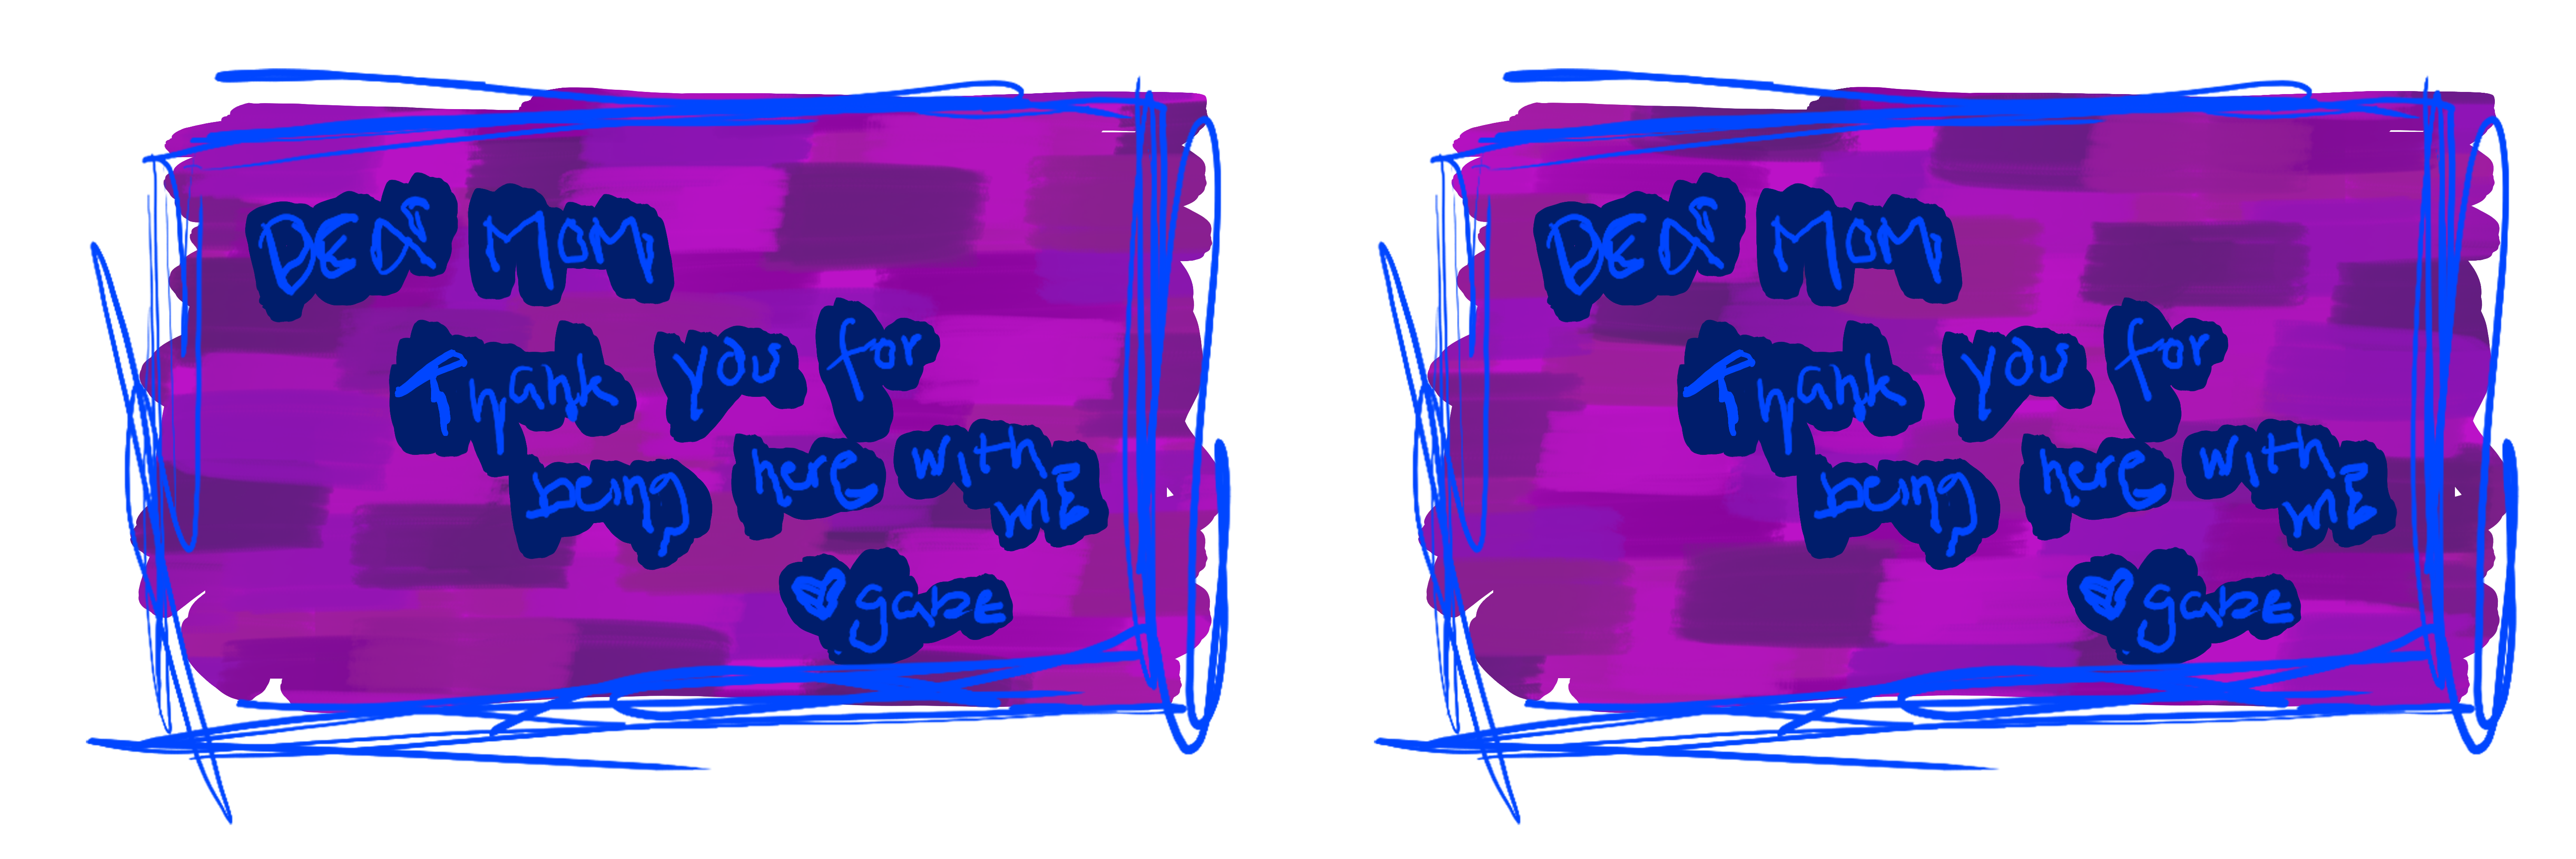 DEAR MOM
Thank you for
being here with
ME
♥ gabe
DEAR MOM
Thank you for
being here with
ME
♥ gabe